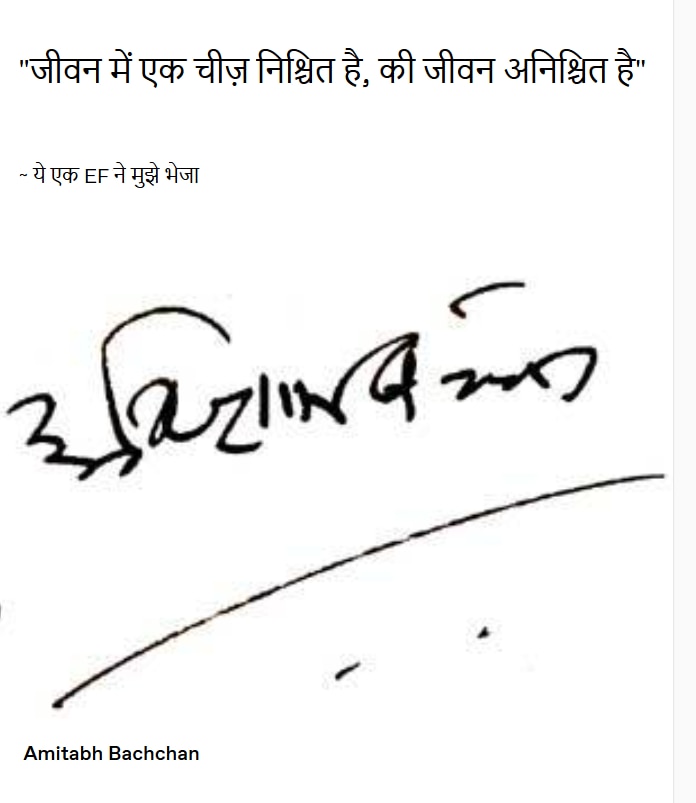 "जीवन में एक चीज़ निश्चित है, की जीवन अनिश्चित है"
~ ये एक EF ने मुझे भेजा
Amitabh Bachchan